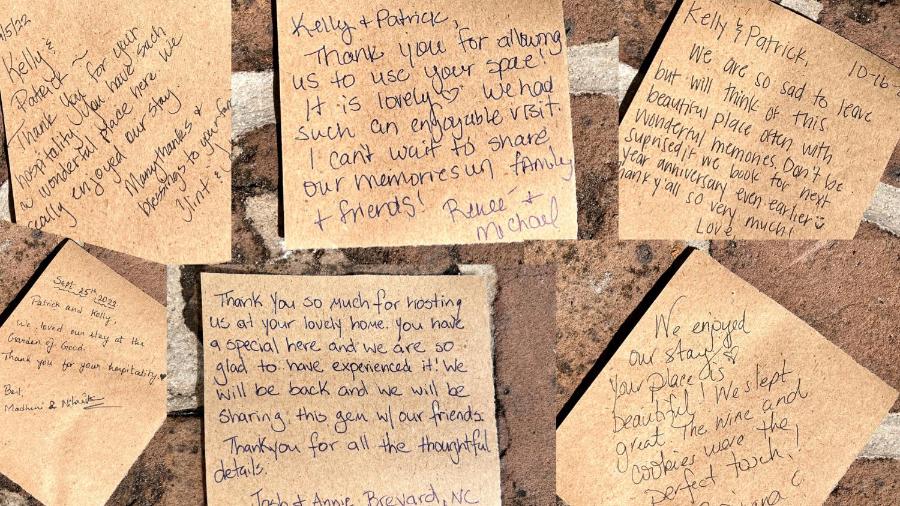 /5/22
Kelly &
Patrick ~
Thank you for your
hospitality. You have such
a wonderful place here. We
really enjoyed our stay
Many thanks &
blessings to your
Clint &
Kelly + Patrick,
Thank you for allowing
us to use your space!
It is lovely ♡ We had
such an enjoyable visit.
I can't wait to share
our memories w family
+ friends!
Reneé +
Michael
Kelly & Patrick,
10-16-
We are so sad to leave
but will think of this
beautiful place often with
wonderful memories. Don't be
suprised if we book for next
year anniversary even earlier
hank y'all so very much!
Love,
Sept 25th 2022
Patrick and Kelly,
We loved our stay at the
Garden of Good.
Thank you for your hospitality ♥
Best,
Madhuri &
Thank you so much for hosting
us at your lovely home. You have
a special here and we are so
glad to have experienced it! We
will be back and we will be
sharing this gem w/ our friends.
Thank you for all the thoughtful
details.
Josh & Annie Brevard, NC
We enjoyed
our stay
Your place is
beautiful! We slept
great. The wine and
cookies were the
perfect touch!